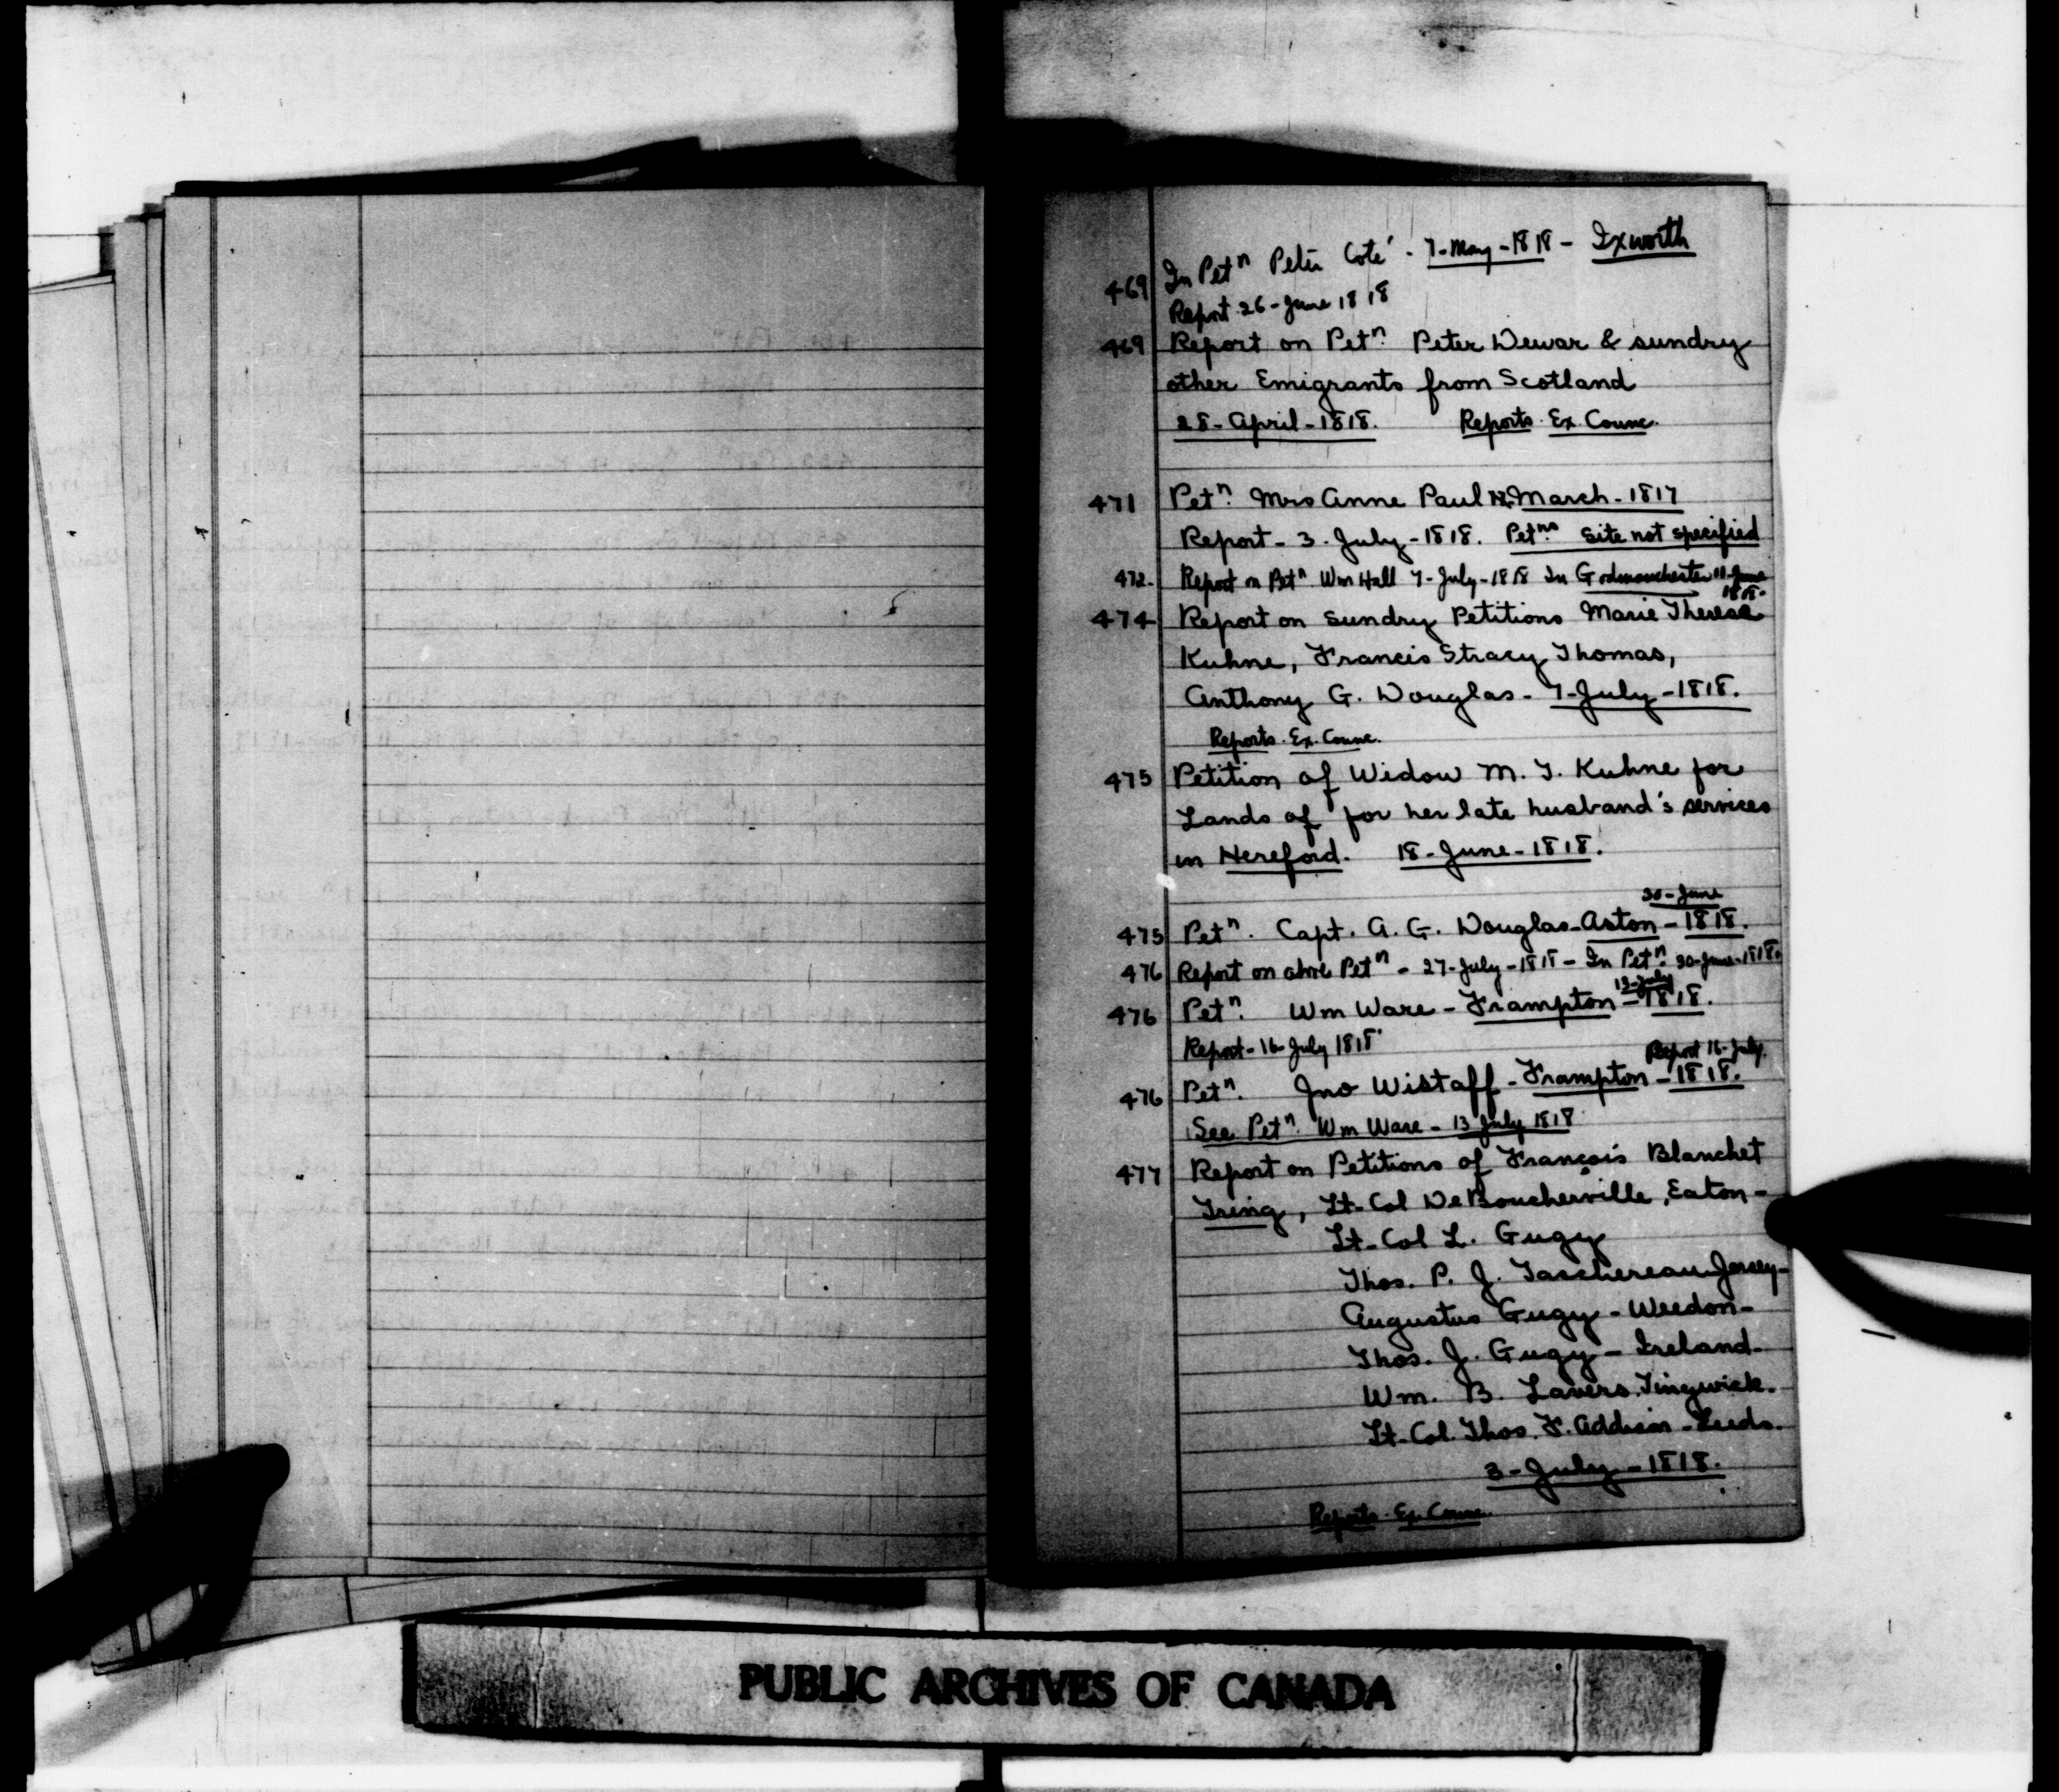 469 In Petn Peter Coté - 7-May-1818 - Ixworth
Report 26-June 1818
469 Report on Petn. Peter Dewar & sundry
other Emigrants from Scotland
28-April-1818. Reports. Ex. Counc.
471 Petn. Mrs Anne Paul March-1817
Report-3-July-1818. Petns. Site not specified
472. Report on Petn Wm Hall 7-July-1818 In Godmanchester 11-June
1818.
474 Report on sundry Petitions Marie Therese
Kuhne, Francis Stracy Thomas,
Anthony G. Douglas-7-July-1818.
Reports. Ex. Counc.
475 Petition of Widow M. T. Kuhne for
Lands of for her late husband's services
in Hereford. 18-June-1818.
30-June
475 Petn. Capt. A. G. Douglas-Aston-1818.
476 Report on above Petn - 27-July-1818 - In Petn. 30-June-1818.
13-July
476 Petn. Wm Ware-Frampton-1818.
Report-16-July 1818
Report 16-July.
476 Petn. Jno Wistaff-Frampton-1818.
See Petn. Wm Ware-13 July 1818
477 Report on Petitions of François Blanchet
Tring, Lt-Col DeBoucherville, Eaton-
Lt-Col L. Gugy
Thos. P. J. Taschereau-Jersey-
Augustus Gugy-Weedon-
Thos. J. Gugy-Ireland-
Wm. B. Lavers. Tingwick.
Lt-Col. Thos. F. Addison-Leeds.
3-July-1818.
Reports. Ex. Counc.
PUBLIC ARCHIVES OF CANADA